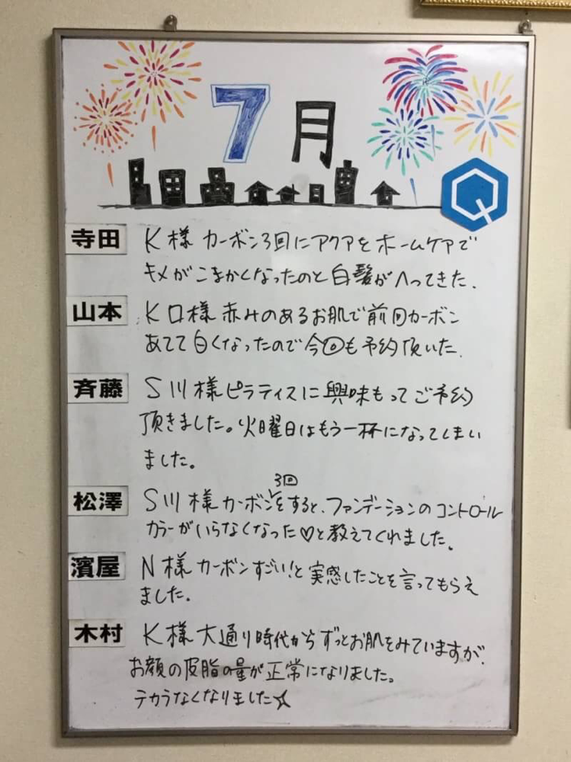 7月
寺田 K様 カーボン3回にアクアとホームケアで
キメがこまかくなったのと白髪がへってきた.
山本 K口様 赤みのあるお肌で前回カーボン
あてて白くなったので今回も予約頂いた.
斉藤 S川様ピラティスに興味もってご予約
頂きました。火曜日はもう一杯になってしまい
ました。
3回
松澤 S川様カーボンをすると、ファンデーションのコントロール
カラーがいらなくなった♡と教えてくれました。
濱屋 N様カーボンすごい!と実感したことを言ってもらえ
ました.
木村 K様大通り時代からずっとお肌をみていますが、
お顔の皮脂の量が正常になりました。
テカらなくなりました☆